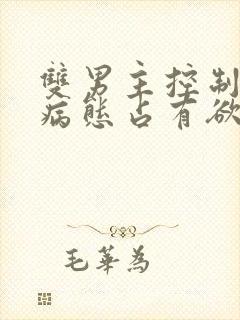 雙男主控制
病態占有欲
毛華為